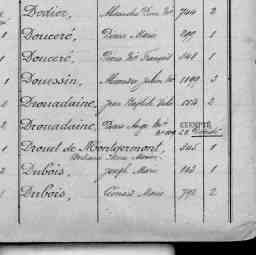 1 Dodier, Alexandre Pierre Mie 744 2
1 Douceré, Pierre Marie 299 1
1 Douceré, Pierre Mie François 548 1
1 Doussin, Alexandre Julien Mie 1199 3
2 Drouadaine, Jean Baptiste 1554 2
2 Drouadaine, Pierre Ange Mie EXEMPTÉ
1 Drouet de Montgermont, 545 1
2 Dubois, Joseph Marie 163 1
2 Dubois, Marie 792 2